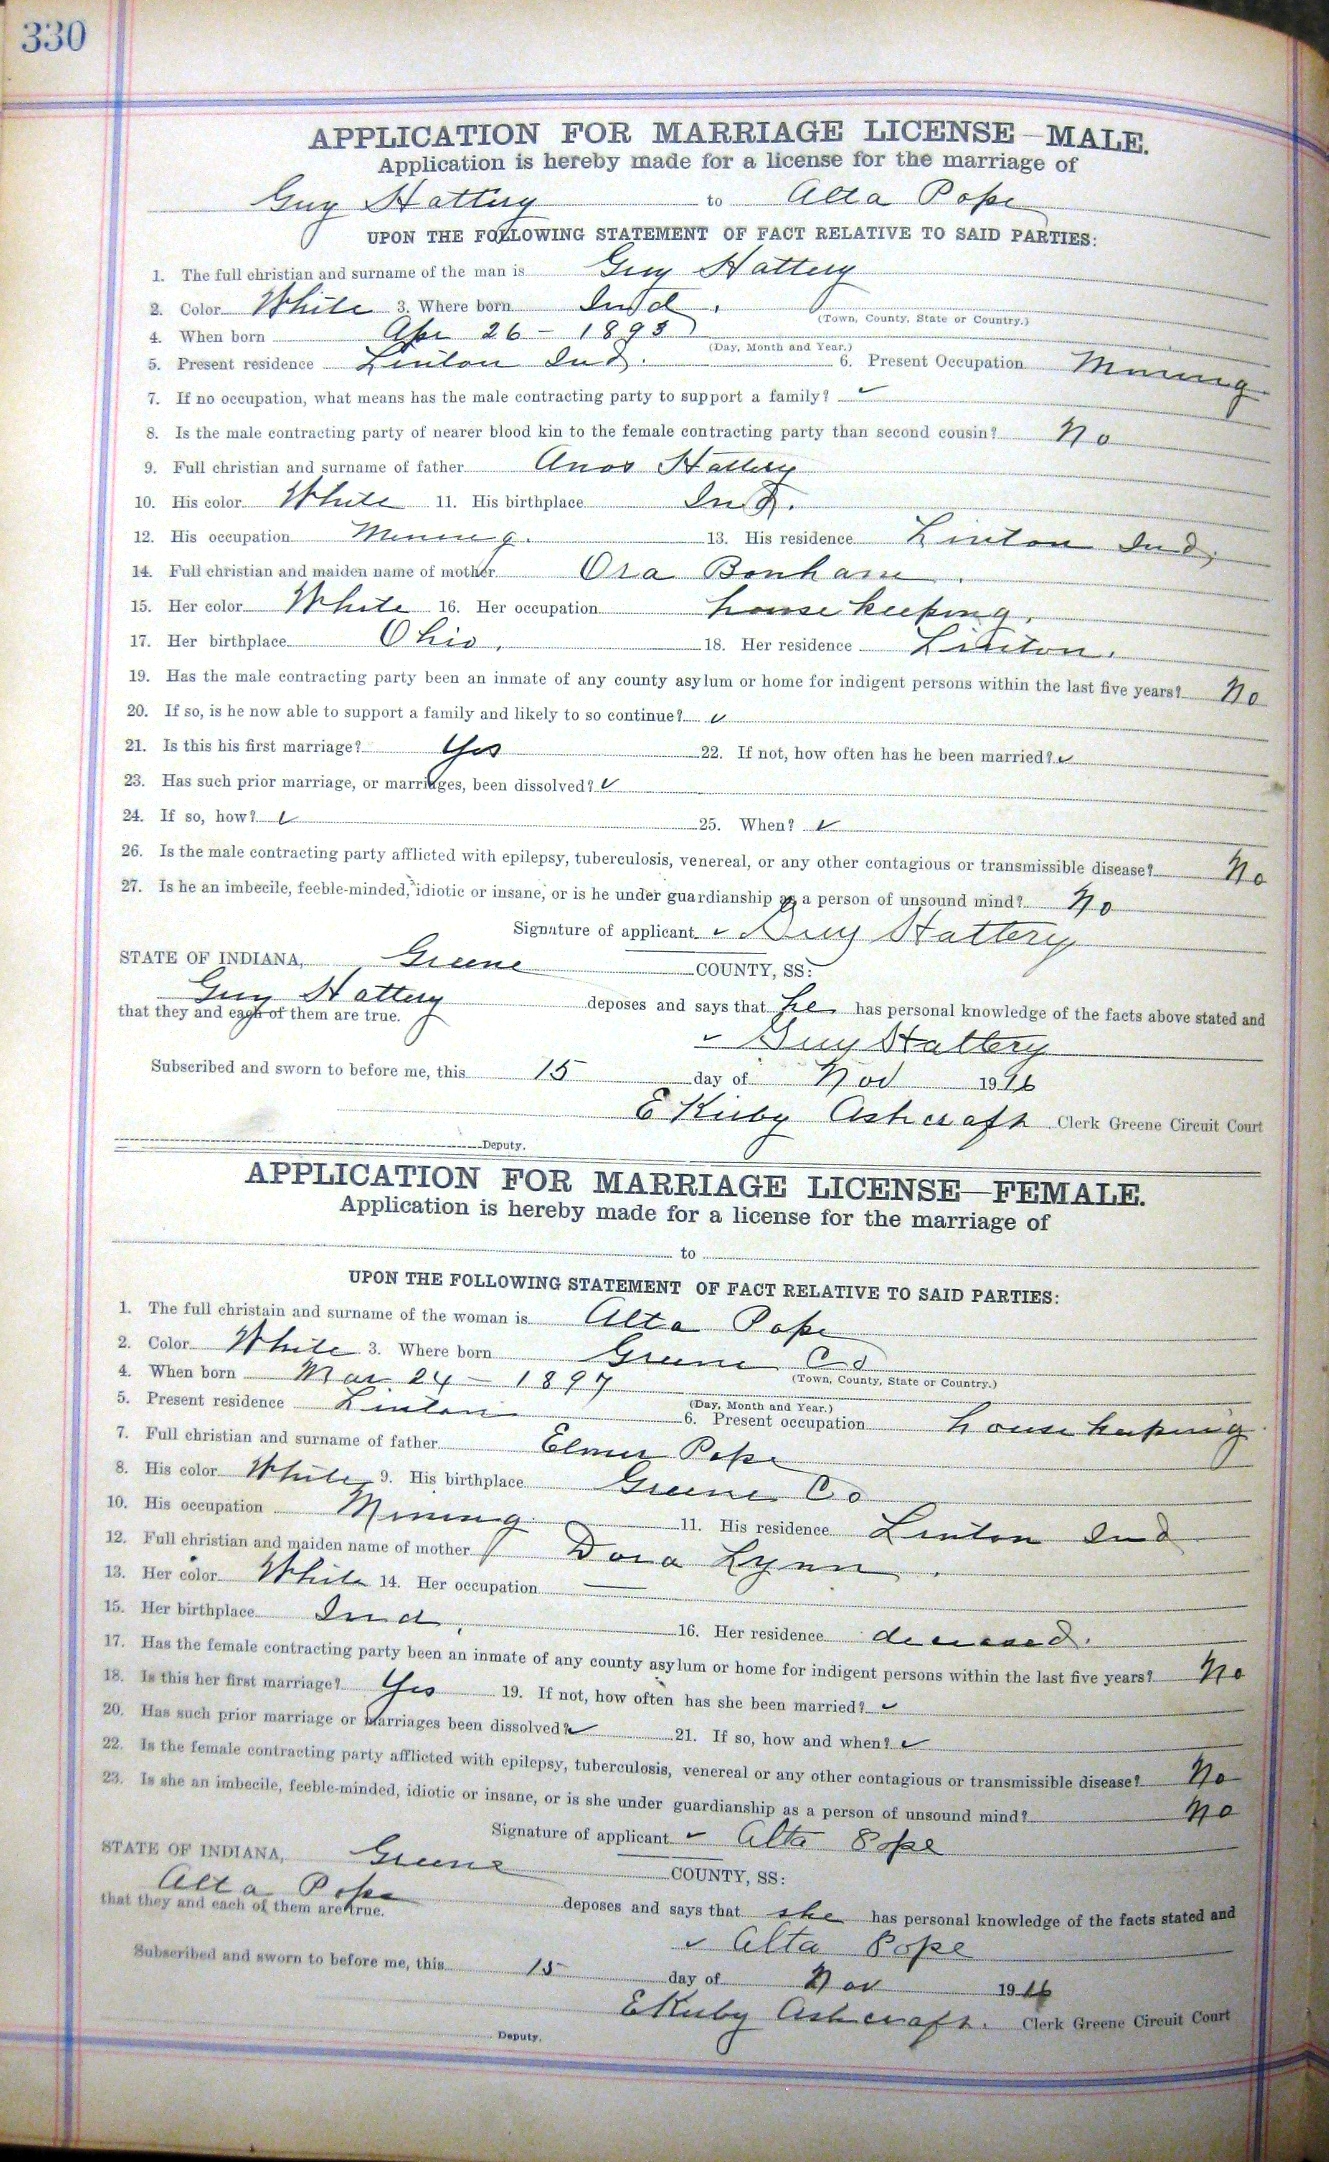 330
APPLICATION FOR MARRIAGE LICENSE—MALE.
Application is hereby made for a license for the marriage of
Guy Hattery to Alta Pope
UPON THE FOLLOWING STATEMENT OF FACT RELATIVE TO SAID PARTIES:
1. The full christian and surname of the man is Guy Hattery
2. Color White 3. Where born Ind.
(Town, County, State or Country.)
4. When born Apr 26 - 1893
(Day, Month and Year.)
5. Present residence Linton Ind. 6. Present Occupation Mining
7. If no occupation, what means has the male contracting party to support a family? ✓
8. Is the male contracting party of nearer blood kin to the female contracting party than second cousin? No
9. Full christian and surname of father Anos Hattery
10. His color White 11. His birthplace Ind.
12. His occupation Mining. 13. His residence Linton Ind,
14. Full christian and maiden name of mother Ora Bonham.
15. Her color White 16. Her occupation house keeping,
17. Her birthplace Ohio. 18. Her residence Linton.
19. Has the male contracting party been an inmate of any county asylum or home for indigent persons within the last five years? No
20. If so, is he now able to support a family and likely to so continue? ✓
21. Is this his first marriage? Yes 22. If not, how often has he been married? ✓
23. Has such prior marriage, or marriages, been dissolved? ✓
24. If so, how? ✓ 25. When? ✓
26. Is the male contracting party afflicted with epilepsy, tuberculosis, venereal, or any other contagious or transmissible disease? No
27. Is he an imbecile, feeble-minded, idiotic or insane, or is he under guardianship as a person of unsound mind? No
Signature of applicant ✓ Guy Hattery
STATE OF INDIANA, Greene COUNTY, SS:
Guy Hattery deposes and says that he has personal knowledge of the facts above stated and
that they and each of them are true.
✓ Guy Hattery
Subscribed and sworn to before me, this 15 day of Nov 1916
E Kirby Ashcraft Clerk Greene Circuit Court
Deputy.
APPLICATION FOR MARRIAGE LICENSE—FEMALE.
Application is hereby made for a license for the marriage of
to
UPON THE FOLLOWING STATEMENT OF FACT RELATIVE TO SAID PARTIES:
1. The full christain and surname of the woman is Alta Pope
2. Color White 3. Where born Greene Co
(Town, County, State or Country.)
4. When born Mar 24 - 1897
(Day, Month and Year.)
5. Present residence Linton 6. Present occupation house keeping
7. Full christian and surname of father Elmer Pope
8. His color White 9. His birthplace Greene Co
10. His occupation Mining 11. His residence Linton Ind
12. Full christian and maiden name of mother Dora Lynn.
13. Her color White 14. Her occupation —
15. Her birthplace Ind, 16. Her residence deceased.
17. Has the female contracting party been an inmate of any county asylum or home for indigent persons within the last five years? No
18. Is this her first marriage? Yes 19. If not, how often has she been married? ✓
20. Has such prior marriage or marriages been dissolved? ✓ 21. If so, how and when? ✓
22. Is the female contracting party afflicted with epilepsy, tuberculosis, venereal or any other contagious or transmissible disease? No
23. Is she an imbecile, feeble-minded, idiotic or insane, or is she under guardianship as a person of unsound mind? No
Signature of applicant ✓ Alta Pope
STATE OF INDIANA, Greene COUNTY, SS:
Alta Pope deposes and says that she has personal knowledge of the facts stated and
that they and each of them are true.
✓ Alta Pope
Subscribed and sworn to before me, this 15 day of Nov 1916
E Kirby Ashcraft. Clerk Greene Circuit Court
Deputy.